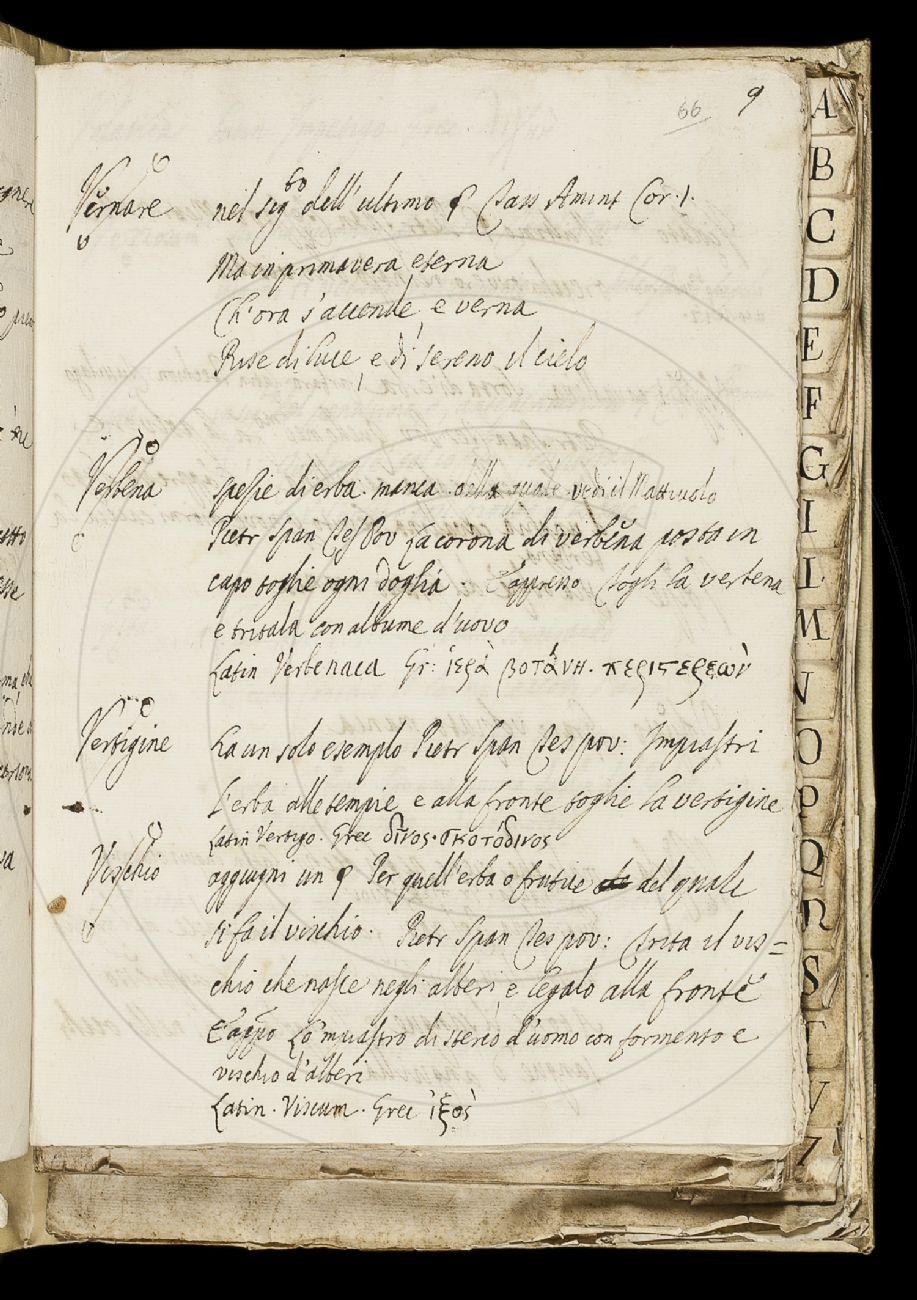 66 9
Vernare nel sig.to dell'ultimo § Tass Amint Cor. 1.
Ma in primavera eterna
Ch'ora s'accende, e verna
Rise di luce, e di sereno il cielo
Verbena spezie di erba manca della quale vedi il Mattiuolo
Pietr Span Tes Pov La corona di verbena posta in
capo toglie ogni doglia. E appresso Togli la verbena
e tritala con albume d'uovo
Latin Verbenaca Gr: ἱερὰ βοτάνη. περιστερεών
Vertigine Ha un solo esemplo Pietr Span Tes pov: Impiastri
L'erba alle tempie e alla fronte toglie la vertigine
Latin Vertigo. Grec δῖνος. σκοτόδινος
Vischio aggiugni un § Per quell'erba o frutice del quale
si fa il vischio. Pietr Span Tes pov: Trita il vis=
chio che nasce negli alberi, e legalo alla fronte
E appo Lo 'mpiastro di sterco d'uomo con formento e
vischio d'alberi
Latin. Viscum. Grec ἰξός
A
B
C
D
E
F
G
I
L
M
N
O
P
Q
R
S
T
V
Z